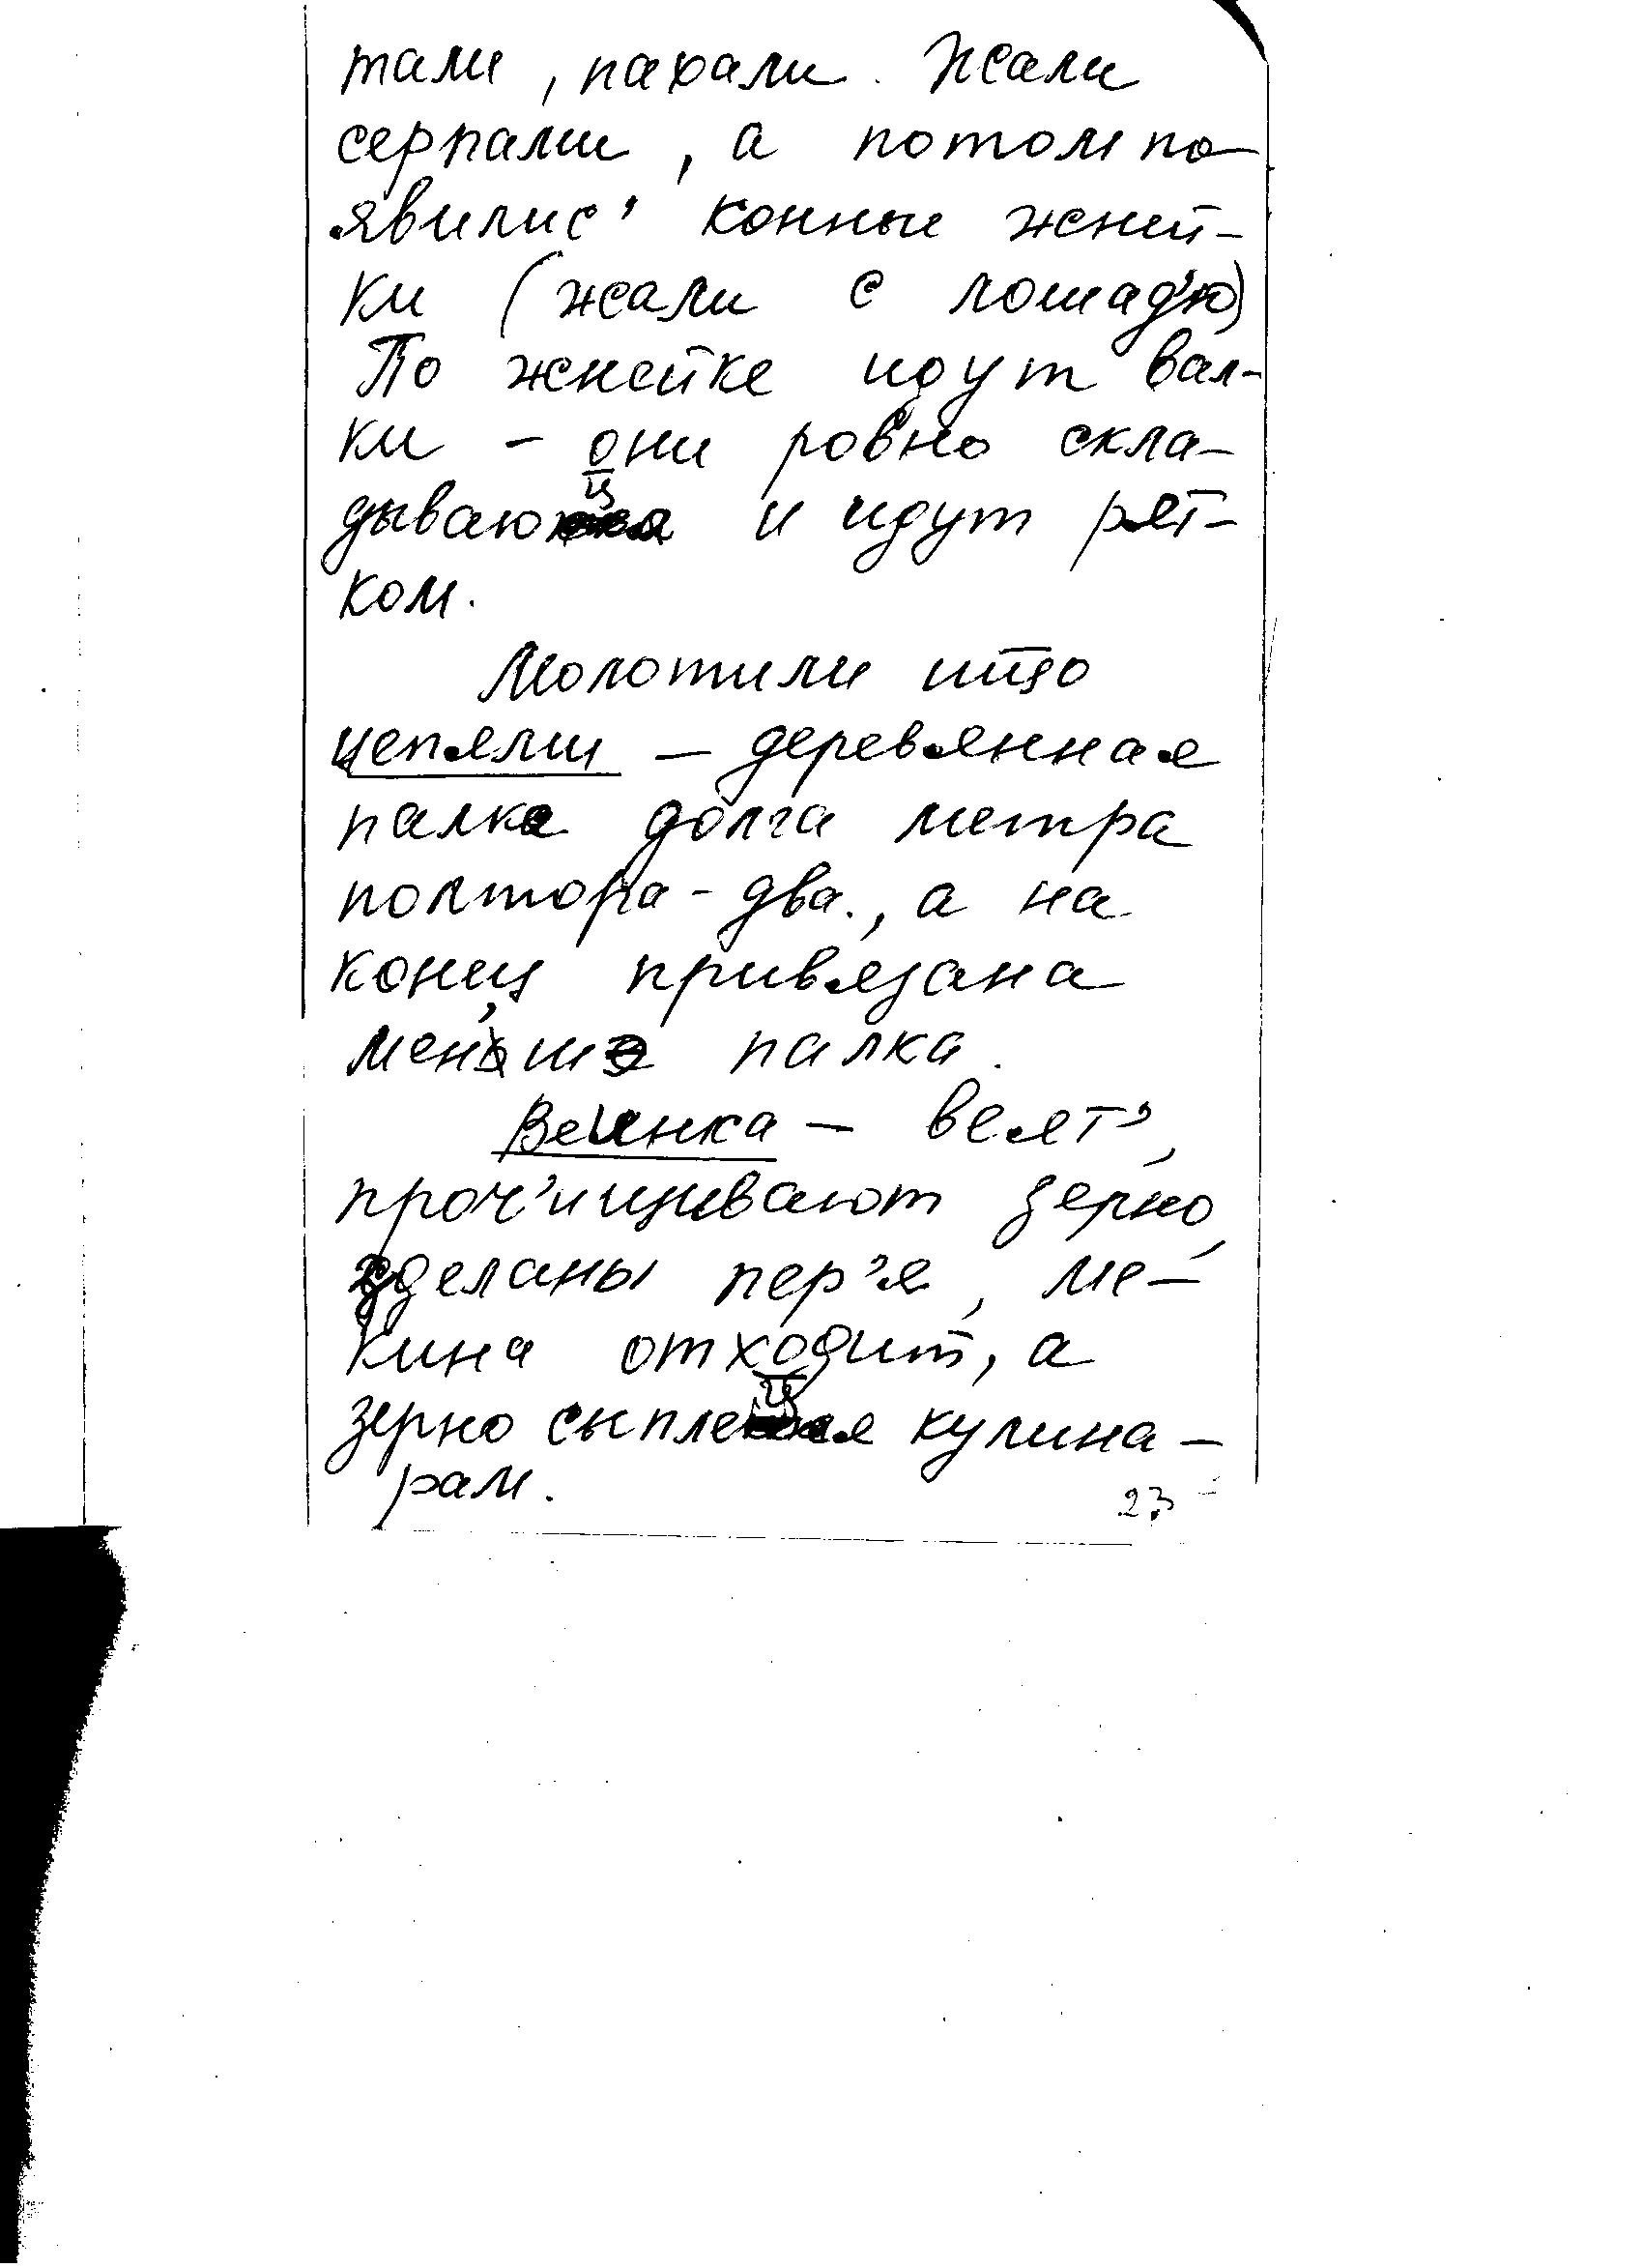 тали, пахали. Жали
серпами, а потом по-
явилис' конные жней-
ки (жали с лошад'ю)
По жнейке идут вал-
ки – они ровно скла-
дываюца и идут рят-
ком.
Молотили ишо
цепями – деревянная
палка долга метра
полтора-два., а на
конец привязана
мен'ша палка.
Веянка – веят',
проч'ищивают зерно,
зделаны пер'я, ме-
кина отходит, а
зерно сыплеця кулина-
рам.
23